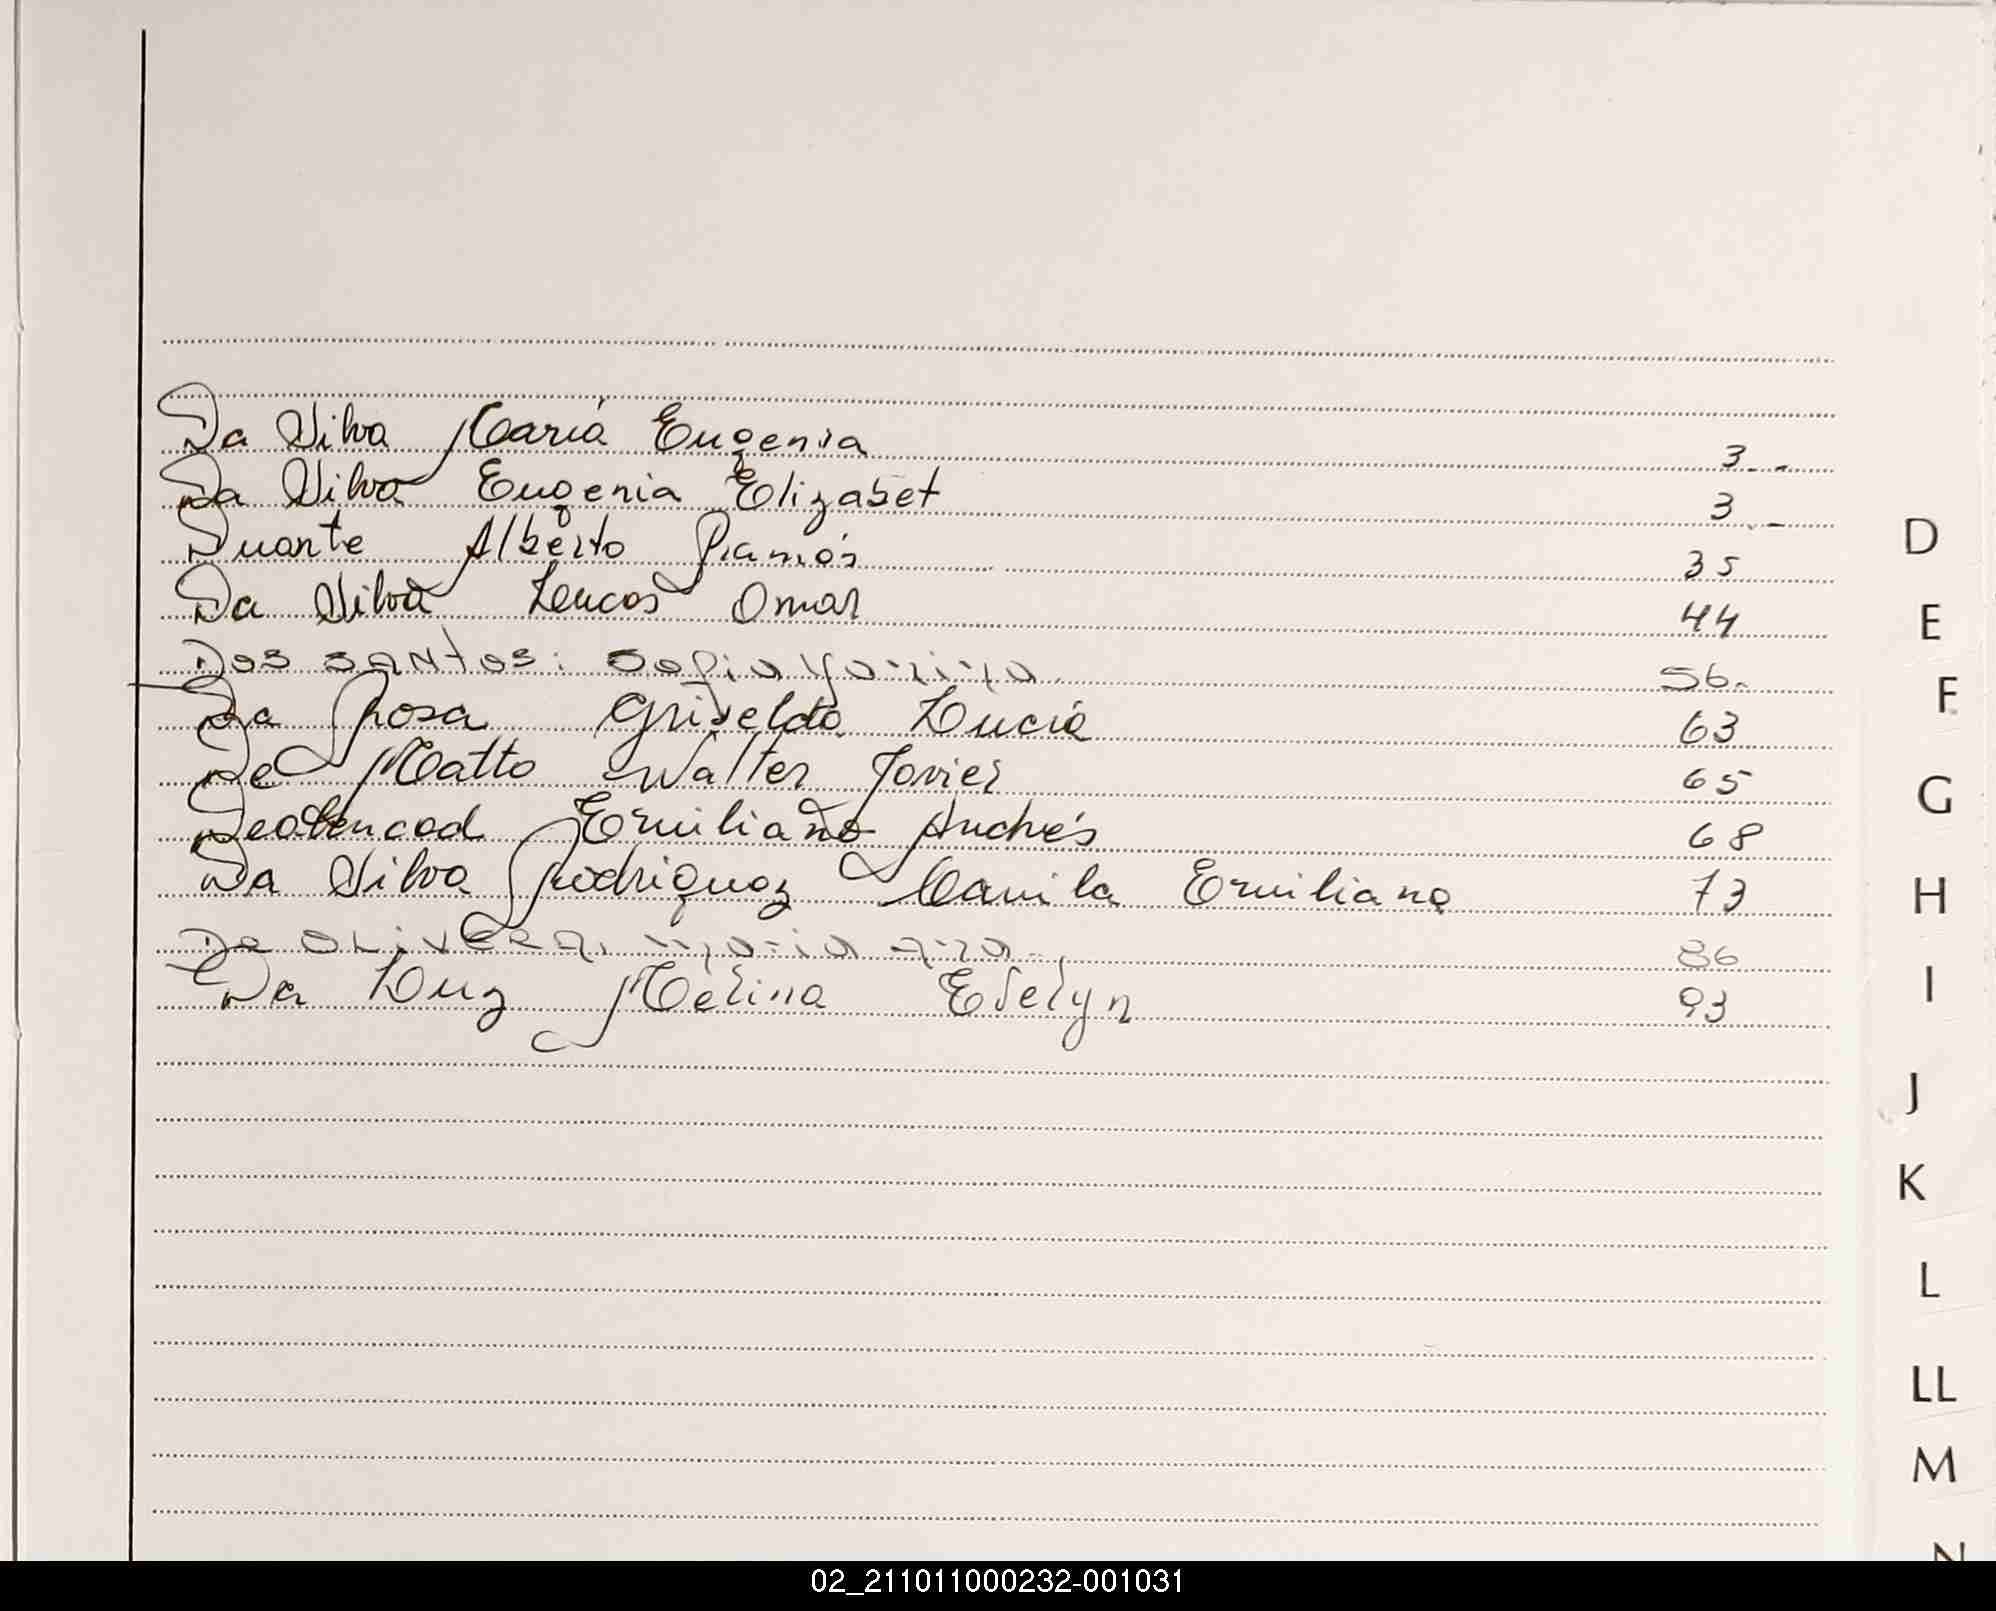 Da Silva María Eugenia 3.-
Da Silva Eugenia Elizabet 3.-
Duarte Alberto Ramós 35
Da Silva Lucas Omar 44
Dos SANtos: Sofia 56.
Da Rosa Griselda Lucía 63
De Matto Walter Javier 65
Emiliano Andrés 68
Da Silva Rodriguez Camila Emiliana 73
De OLiVERA, maria ana 86
Da Luz Melina Evelyn 93
D
E
F
G
H
I
J
K
L
LL
M
N
02_211011000232-001031